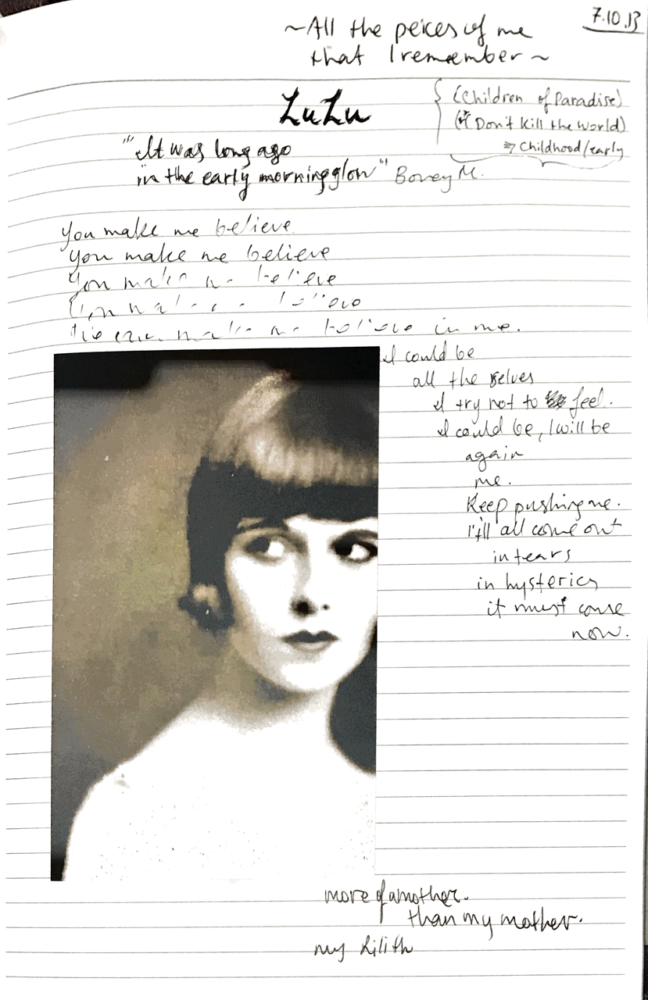 7.10.13
~All the peices of me
that I remember~
LuLu
(Children of Paradise)
(Don't Kill the World)
⇒ Childhood/early
"It was long ago
in the early morning glow" Boney M.
you make me believe
you make me believe
you make me believe
believe
believe in me.
I could be
all the selves
I try not to feel.
I could be, I will be
again
me.
Keep pushing me.
It'll all come out
in tears
in hysterics
it must come
now.
more of a mother.
than my mother.
my Lilith